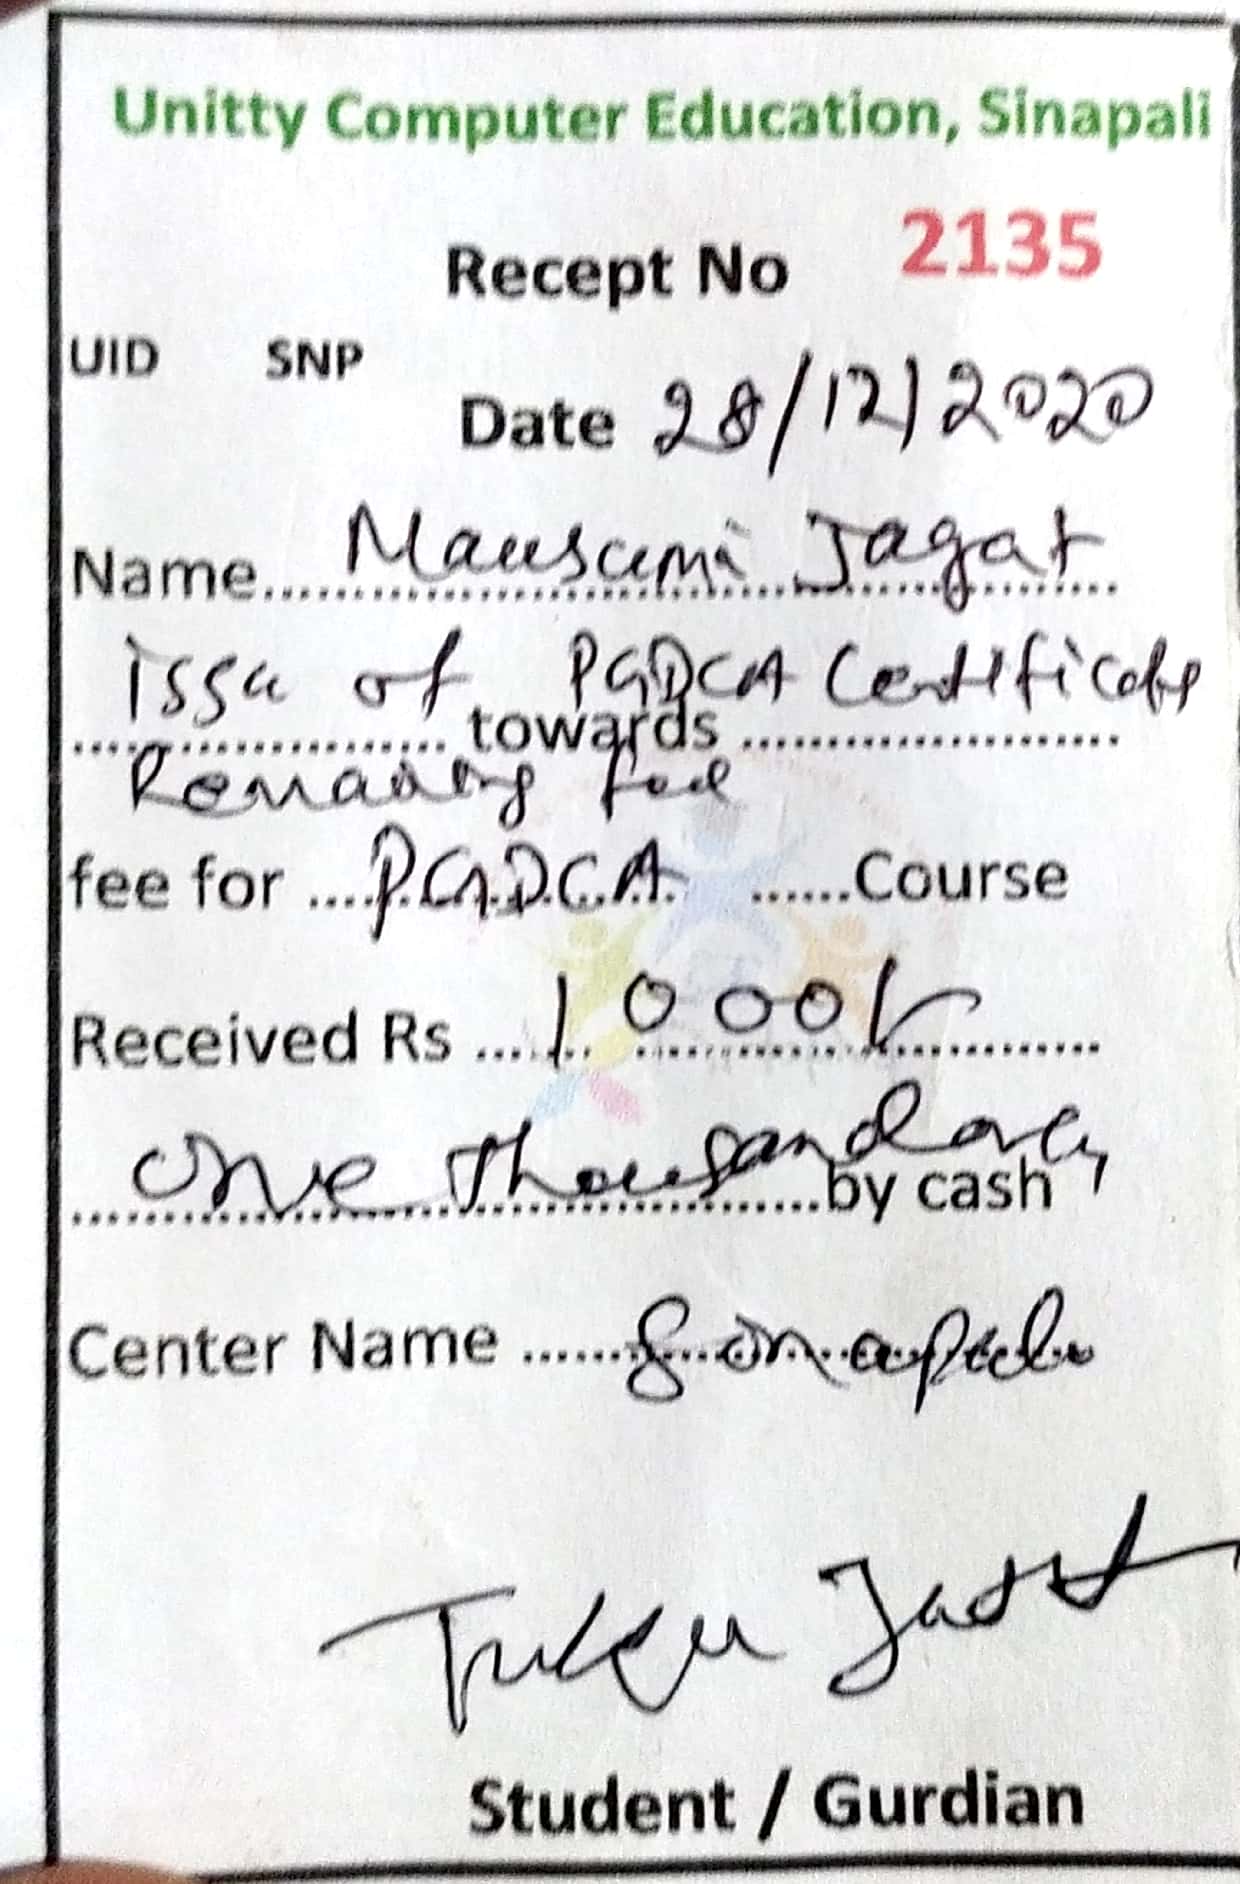 Unitty Computer Education, Sinapali
Recept No 2135
UID SNP
Date 28/12/2020
Name.......Mausumi Jagat.......
issu of PGDCA Certificate
.................... towards ......................
Remaining fee
fee for ....P.G.D.C.A. ......Course
Received Rs .....1000/-............
One thousand only
......................................by cash
Center Name ......Sinapali
Jagat
Student / Gurdian